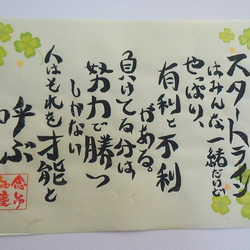 スタートライン
はみんな一緒だけど
やっぱり、
有利と不利
がある。
負けてる分は
努力で勝つ
しかない
人はそれを才能と
呼ぶ